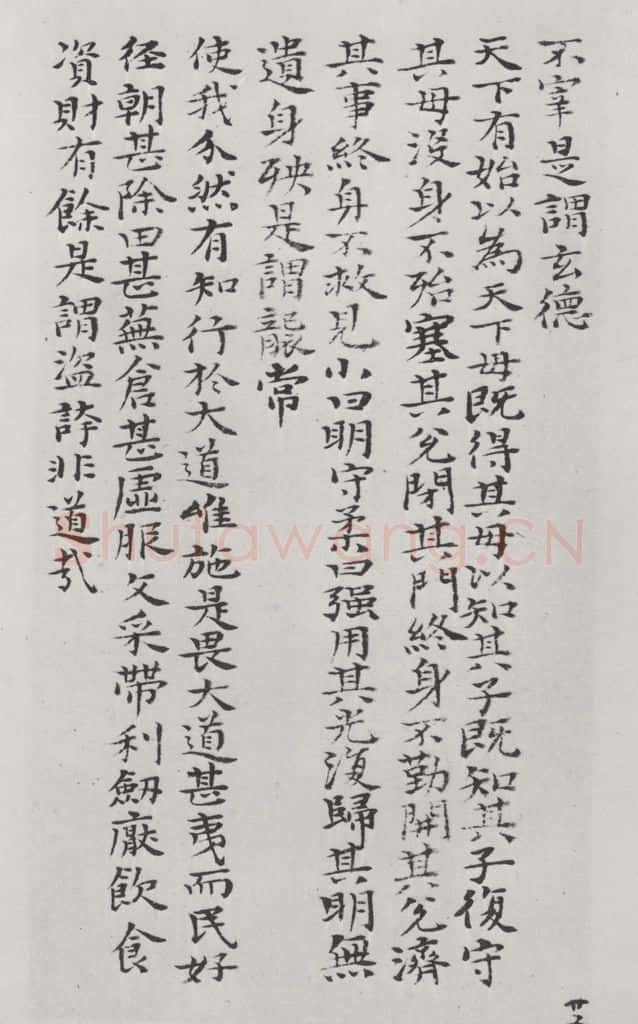 不宰是謂玄德
天下有始以為天下母既得其母以知其子既知其子復守
其母沒身不殆塞其兌閉其門終身不勤開其兌濟
其事終身不救見小曰明守柔曰强用其光復歸其明無
遺身殃是謂襲常
使我介然有知行於大道唯施是畏大道甚夷而民好
徑朝甚除田甚蕪倉甚虛服文采帶利劒厭飲食
資財有餘是謂盜誇非道哉
Shufawang.CN